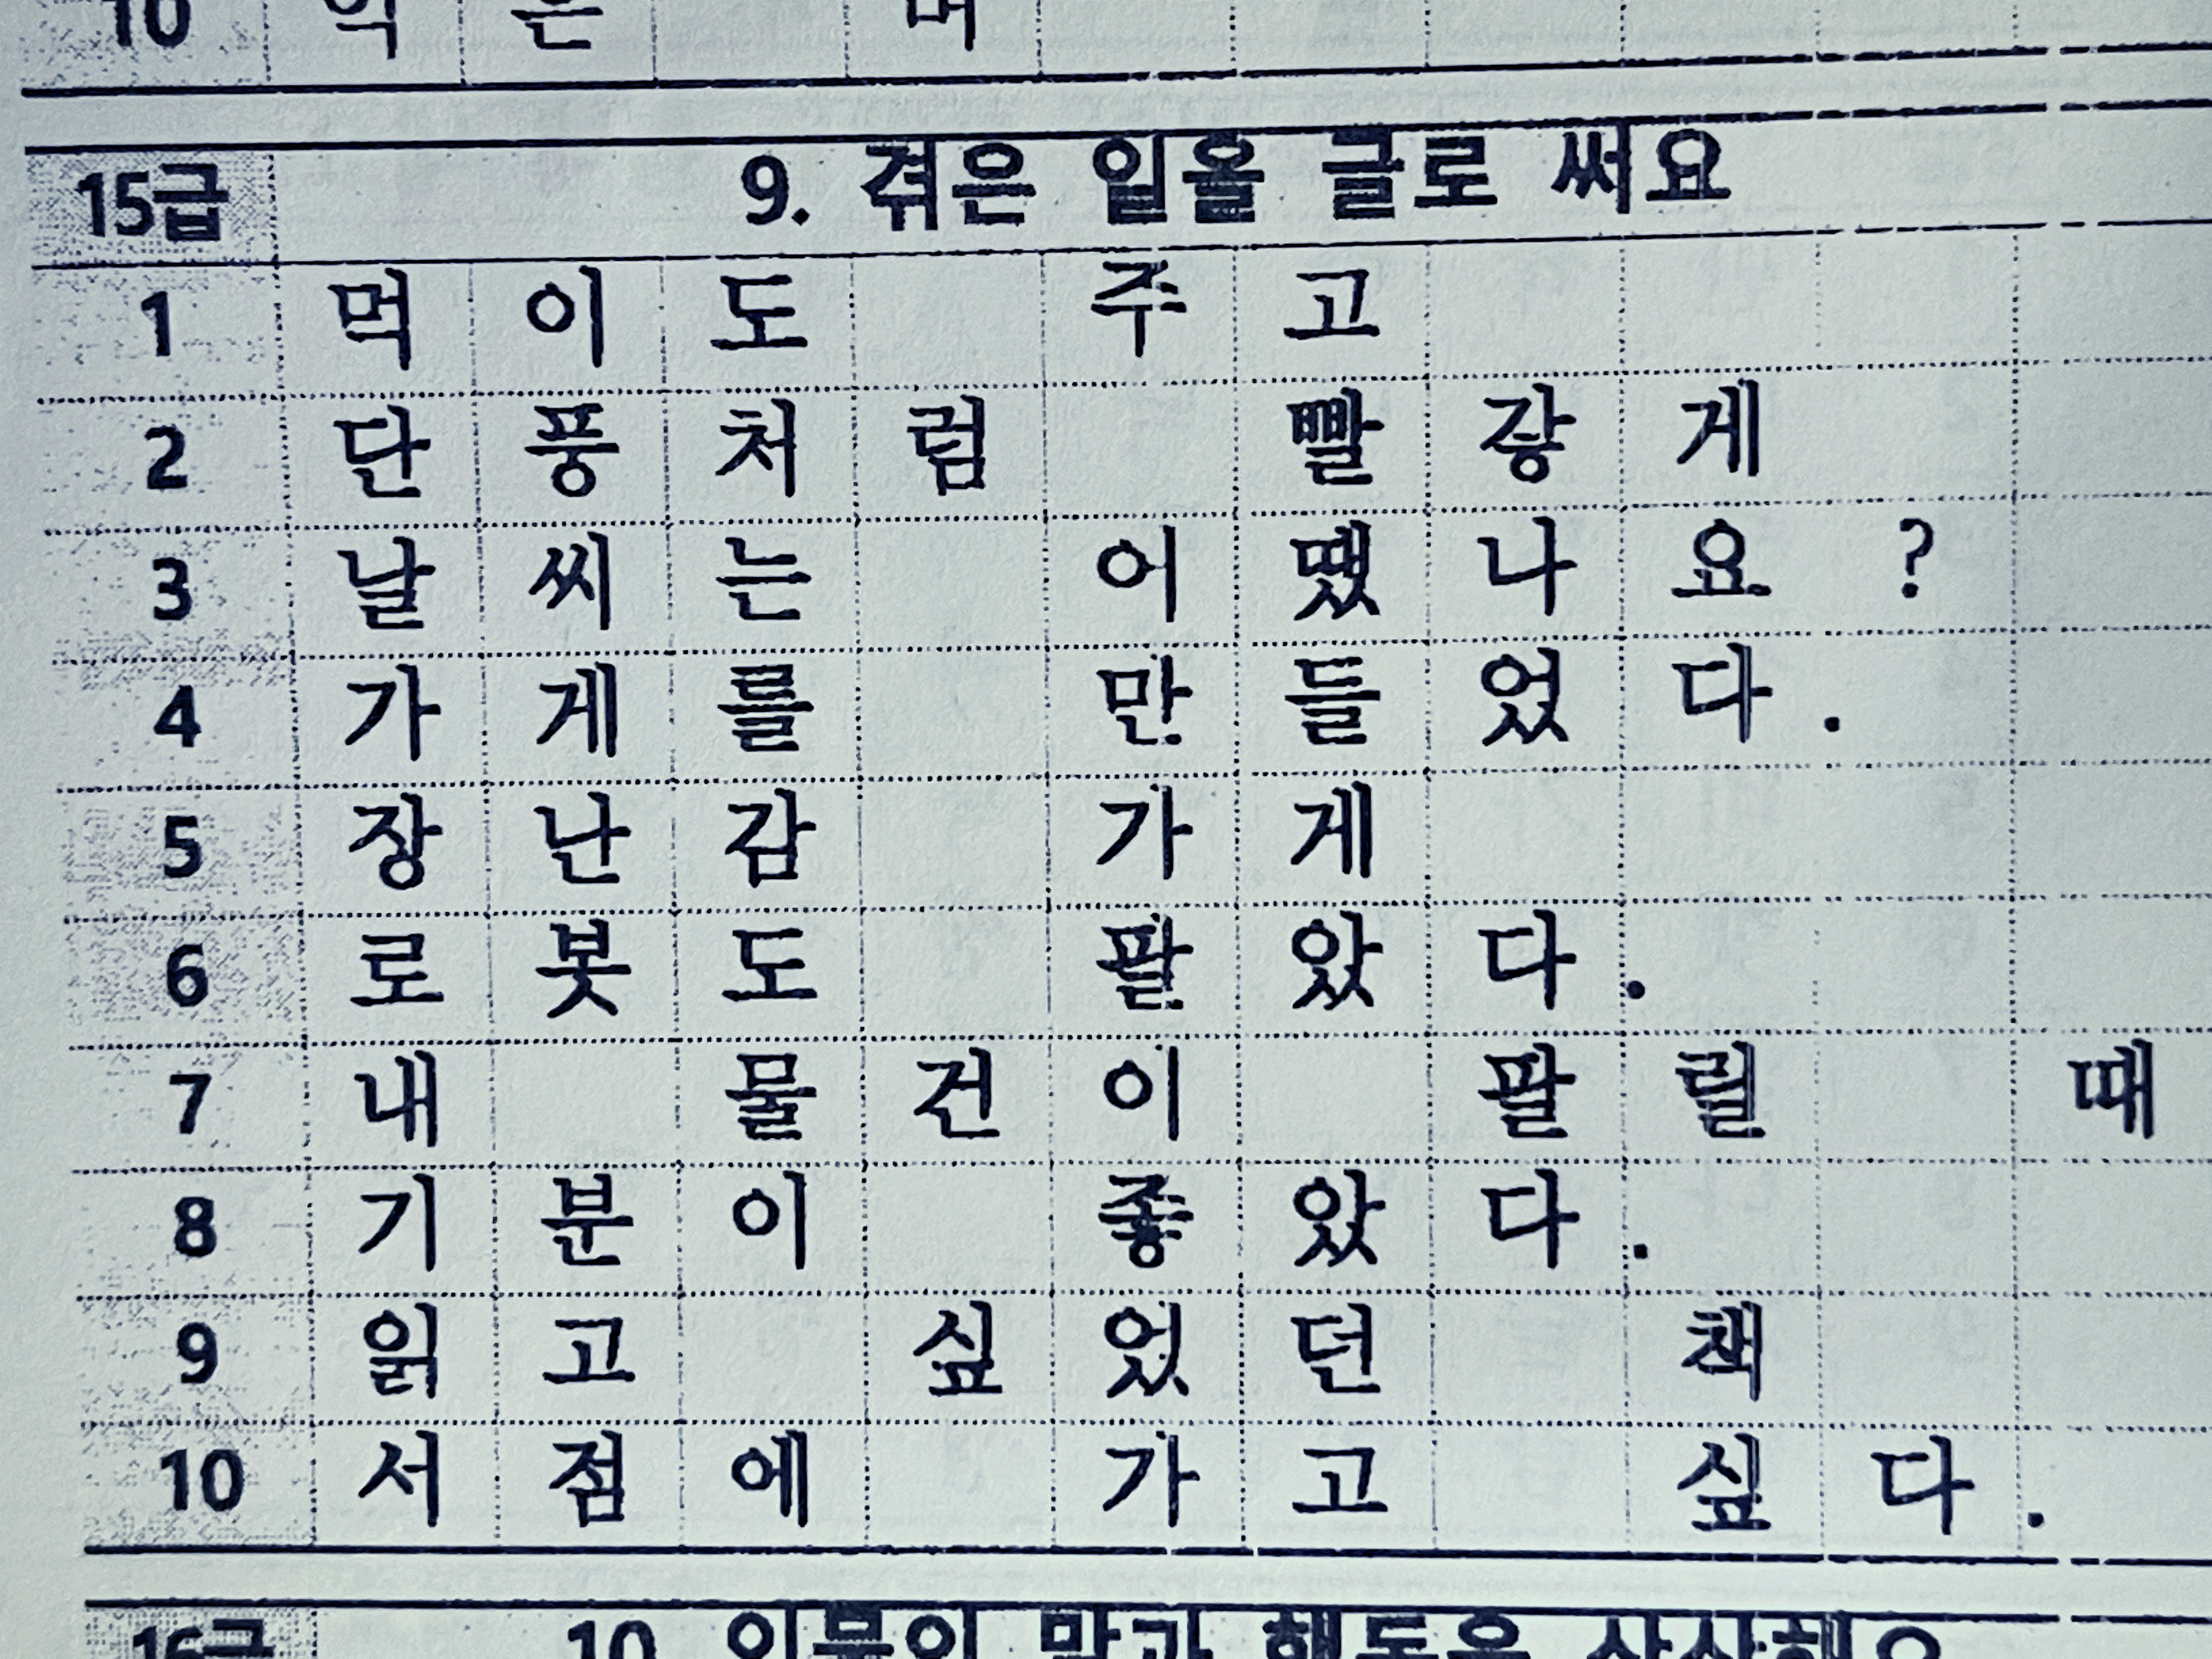 10 익은
15급 9. 겪은 일을 글로 써요
1 먹이도 주고
2 단풍처럼 빨갛게
3 날씨는 어땠나요?
4 가게를 만들었다.
5 장난감 가게
6 로봇도 팔았다.
7 내 물건이 팔릴 때
8 기분이 좋았다.
9 읽고 싶었던 책
10 서점에 가고 싶다.
16급 10. 인물의 말과 행동을 상상해요